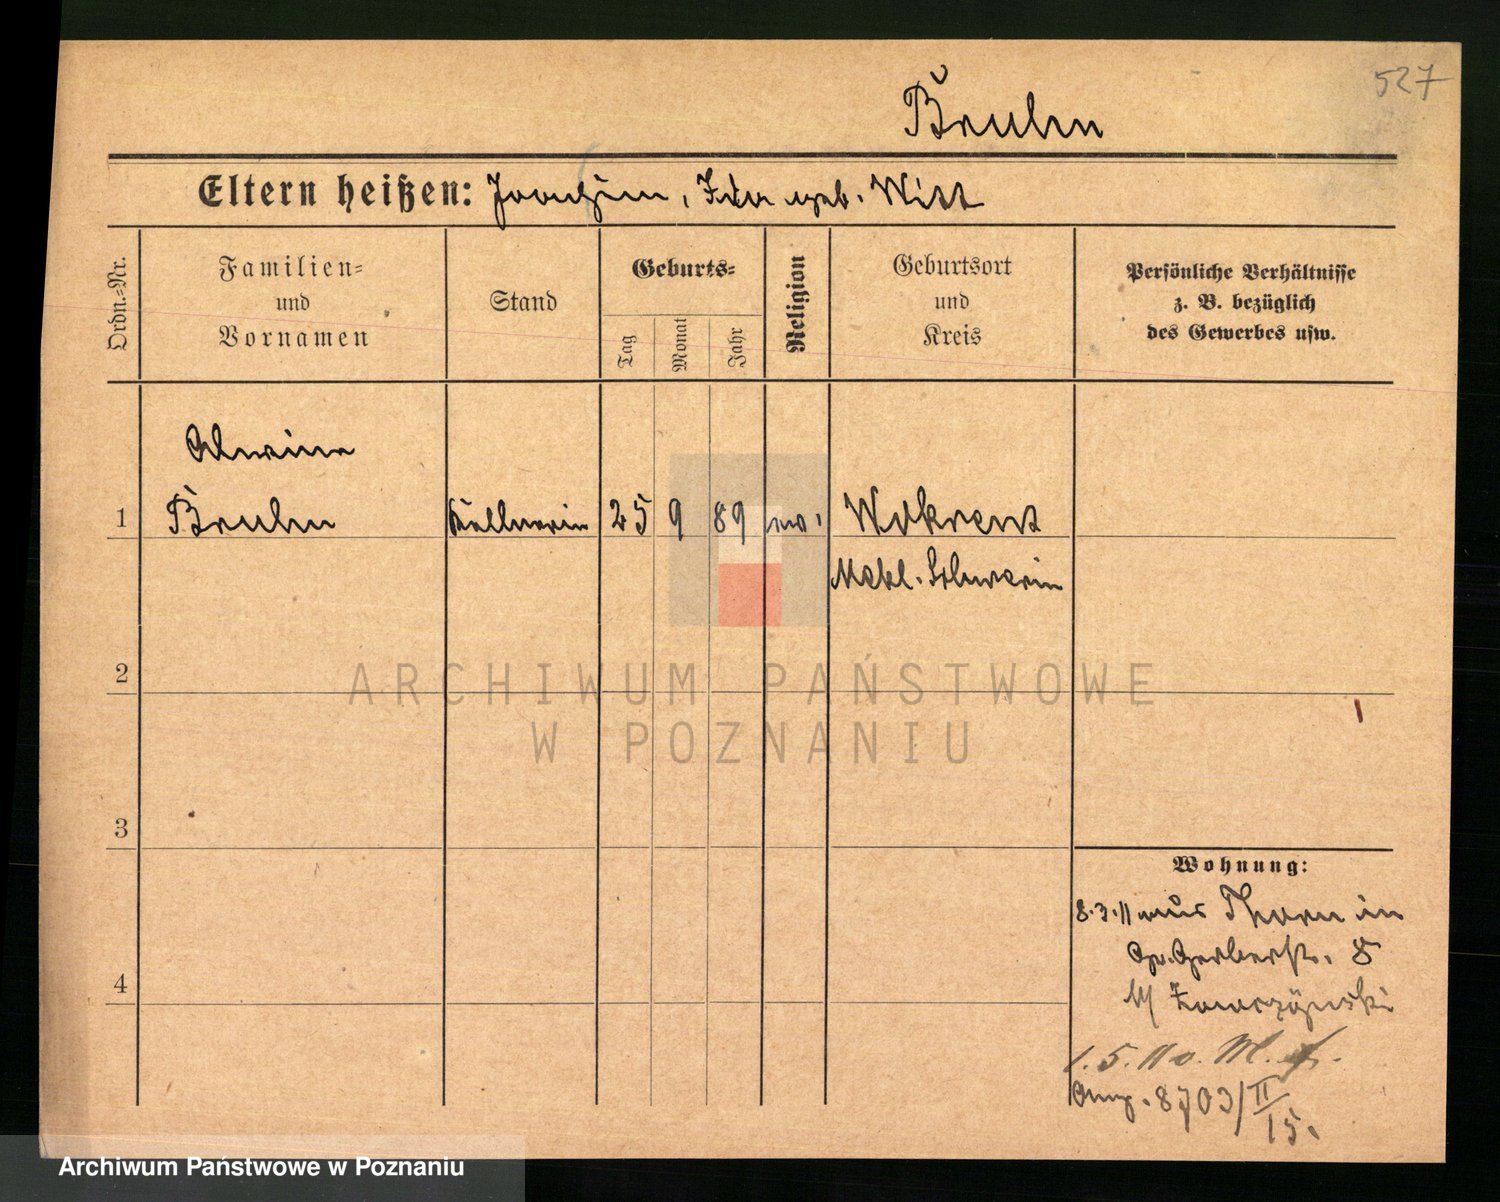 527
Bruhn
Eltern heißen: Joachim, Ida geb. Witt
Ordn.-Nr.
Familien-
und
Vornamen
Stand
Geburts-
Tag
Monat
Jahr
Religion
Geburtsort
und
Kreis
Persönliche Verhältnisse
z. B. bezüglich
des Gewerbes usw.
Alwine
1 Bruhn Kellnerin 25 9 89 ev. Wokrent
Mekl. Schwerin
ARCHIWUM PAŃSTWOWE
W POZNANIU
2
3
4
Wohnung:
8.3.11 aus Thorn in
Gr. Gerberstr. 8
b/
1.5.11 o. M. f.
8703/II
15.
Archiwum Państwowe w Poznaniu